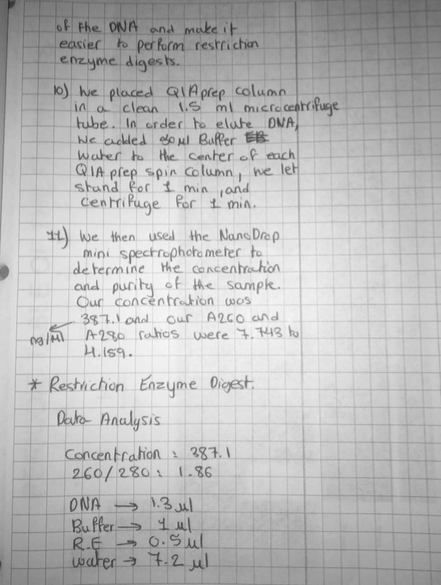 of the DNA and make it
easier to perform restriction
enzyme digests.
10) We placed QIAprep column
in a clean 1.5 ml microcentrifuge
tube. In order to elute DNA,
we added 50 µl Buffer EB
water to the center of each
QIAprep spin column, we let
stand for 1 min, and
centrifuge for 1 min.
11) We then used the NanoDrop
mini spectrophotometer to
determine the concentration
and purity of the sample.
Our concentration was
387.1 and our A260 and
ng/µl A280 ratios were 7.743 to
4.159.
* Restriction Enzyme Digest.
Data Analysis
Concentration : 387.1
260/280 : 1.86
DNA → 1.3 µl
Buffer → 1 µl
R.E → 0.5 µl
water → 7.2 µl